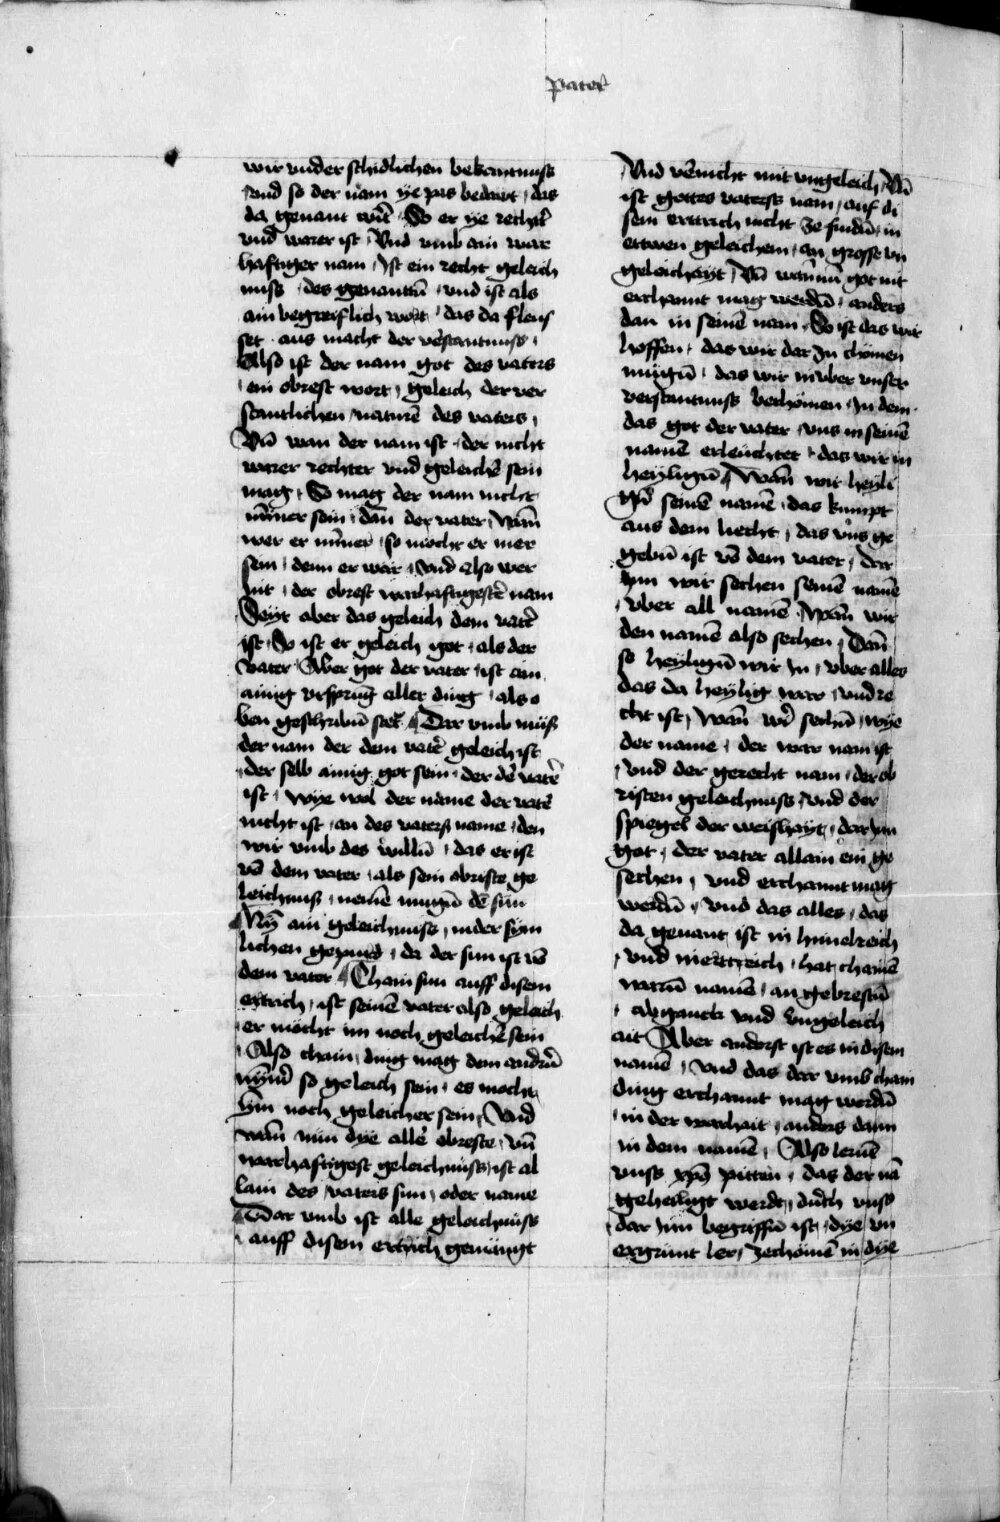 pater
wir vnder schidlichen bekantnuss
vnd so der nam ye pas bedewt das
da genant wirt So er ye rechter
vnd warer ist Vnd vmb ain war
haftiger nam Ist ein recht geleich
nuss des genantn̄ vnd ist als
ain begreiflich wort das da fleus
set aus macht der v̄stantnuss
Also ist der nam got des vaters
ein obrest wort geleich der ver
stantlichen naturē des vaters
Vn̄ wan der nam ist der nicht
warer rechter vnd geleichē sein
mag So mag der nam nicht
mīner sein dan̄ der vater Wan̄
wer er mīner so mocht er mer
sein denn er wär vnd also wer
nit der obrest warhaftigestē nam
Seyt aber das geleich dem vatē
ist So ist er geleich got als der
vater Aber got der vater ist ain
ainig vrsprung aller ding als o
ben geschribn̄ stet Dar vmb müss
der nam der dem vatē geleich ist
der selb ainig got sein der dē vatē
ist wye wol der name der vatē
nicht ist an des vaters name den
wir vmb des willn̄ das er ist
vō dem vater als sein obriste ge
leichnuss nenē mugn̄ dē sun
Nym̄ ain geleichnuss in der syn
lichen da der sun ist vō
dem vater Chain sun auff disem
ertrich ist seinē vater also geleich
er möcht im noch geleichē sein
Also chain ding mag dem andr̄n
so geleich sein es mocht
ym noch geleicher sein Vnd
wan̄ nün dye aller obreste vn̄
warhaftigest geleichnüss ist al
lain des vaters sun oder name
Dar vmb ist alle geleichnüss
auff disem ertrich gemängt
Vnd v̄mischt mit vngeleich Vn̄
ist gottes vaters nam auf di
sem ertrich nicht ze findn̄ in
ettwen geleichem an grosse vn
geleichayt Vn̄ wān nū got nit
erchannt mag werdn̄ anders
dan in seinē nam So ist das wir
hoffen das wir dar zu chömen
mügn̄ das wir in vber vnser
verstantnuss bechömen In dem
das got der vater vns in seinē
namē erleuchtet das wir in
heylign̄ Wan̄ wir heyli
gn̄ seinē namē das kumpt
aus dem liecht das vns ge
gebn̄ ist vō dem vater dar
ynn wir sechen seinē namē
vber all namē Wan̄ wir
den namē also sechen Dan̄
so heylign̄ wir in vber alles
das da heylig war vnd re
cht ist Wan̄ wir sechn̄ wye
der name der war nam ist
vnd der gerecht nam der ob
risten geleichnuss vnd der
spiegel der weishayt dar ynn
got der vater allain ein ge
sechen vnd erchannt mag
werdn̄ vnd das alles das
da genant ist in himelreich
vnd in erttreich hat chainē
warn̄ namē an gebrestn̄
abganck vnd vngeleich
ait Aber anderst ist es in disem
namē vnd das dar vmb chain
ding erchannt mag werdn̄
in der warhait anders dann
in dem namē Also lernē
vnss xp̄s pitten das der nā
geheiligt werde durch vnss
dar ynn begriffn̄ ist dye vn
ergrünt ler zechömē in dye